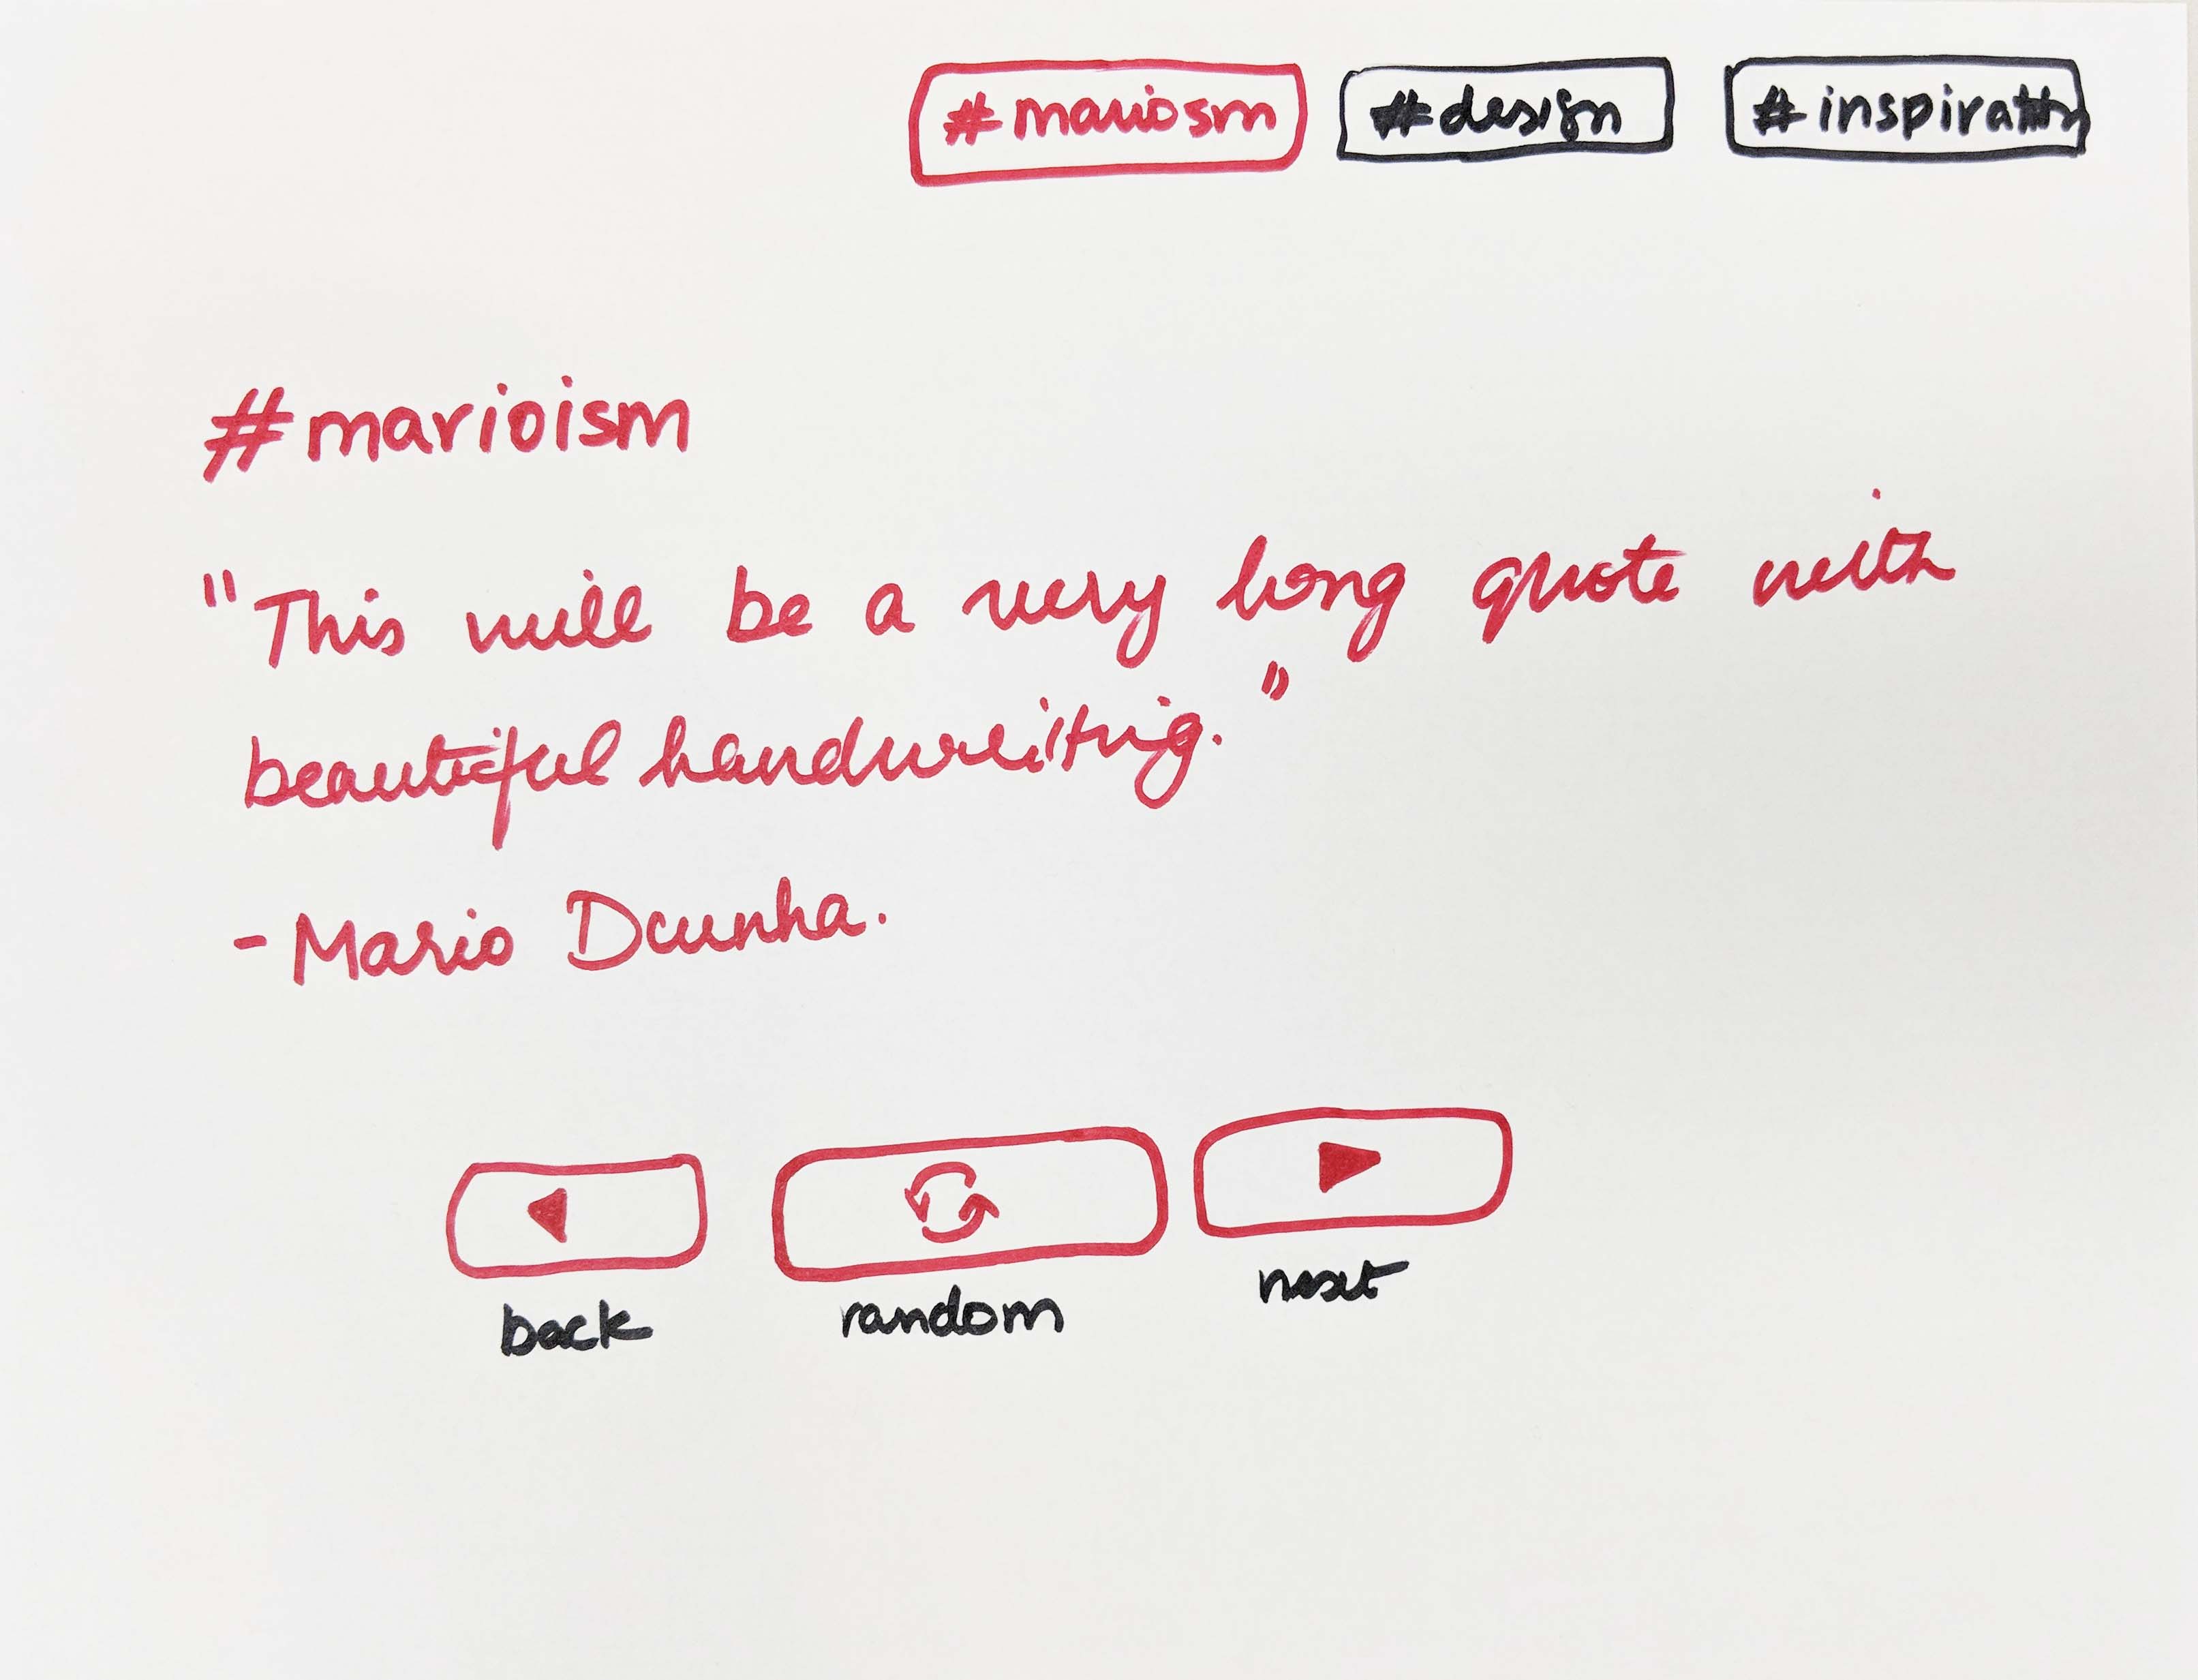 #mariosm #design #inspiration
#marioism
"This will be a very long quote with
beautiful handwriting."
- Mario Dcunha.
back random next